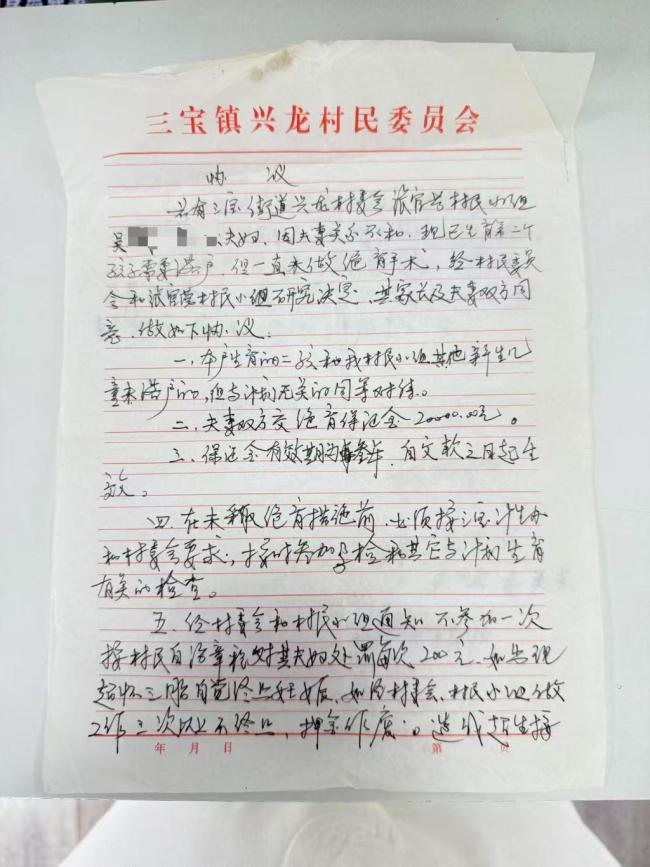 三宝镇兴龙村民委员会
协 议
兹有三宝街道兴龙村委会派官营村民小组
吴 夫妇、因夫妻关系不和、现已生育第二个
孩子 落户、但一直未做绝育手术、经村民委员
会和派官营村民小组研究决定、其家长及夫妻双方同
意、做如下协议:
一、本户生育的二孩和我村民小组其他新生儿
童来落户的、但与计划无关的同等对待。
二、夫妻双方交绝育保证金20000.00元。
三、保证金有效期为叁年、自交款之日起生
效。
四、在未采取绝育措施前、必须按三宝计生办
和村委会要求、按时参加孕检和其它与计划生育
有关的检查。
五、经村委会和村民小组通知不参加一次
按村民自治章程对其夫妇处罚每次200元、如出现
超怀三胎自觉终止妊娠、如经村委会、村民小组做
工作三次以上不终止、押金作废。造成超生按
年 月 日 第 页